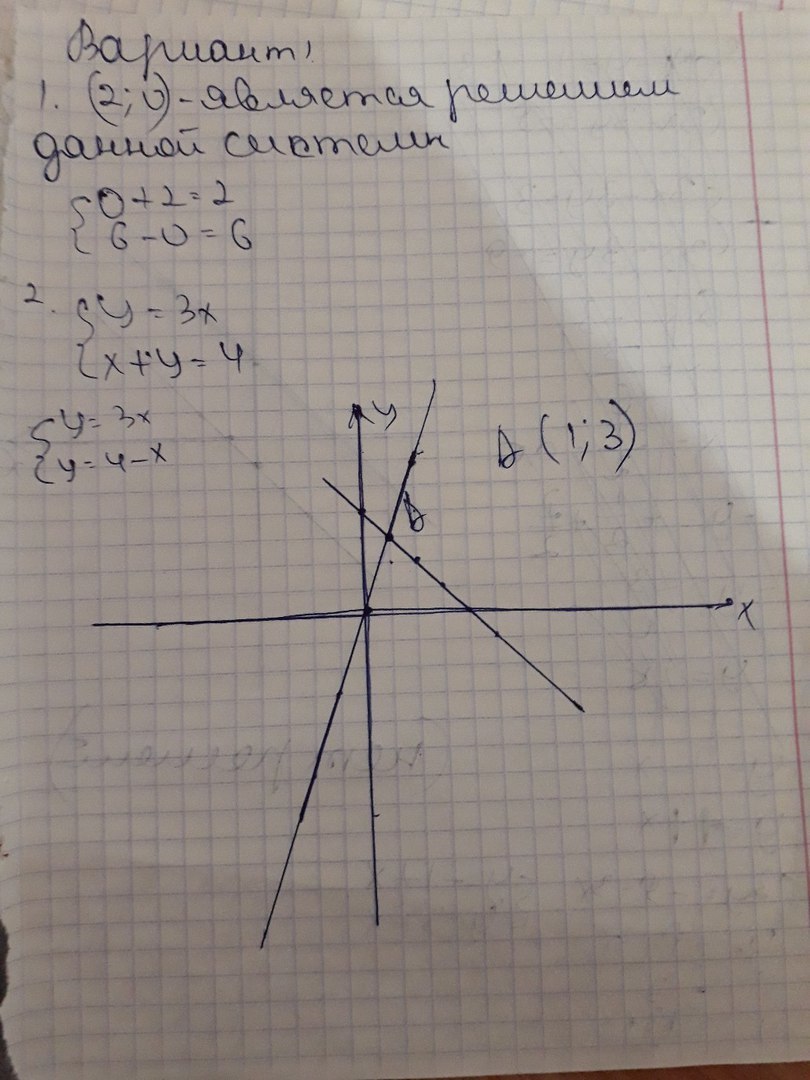 Вариант 1
1. (2; 0) - является решением
данной системы
{ 0 + 2 = 2
{ 6 - 0 = 6
2. { y = 3x
{ x + y = 4
{ y = 3x
{ y = 4 - x
y
A (1; 3)
A
x